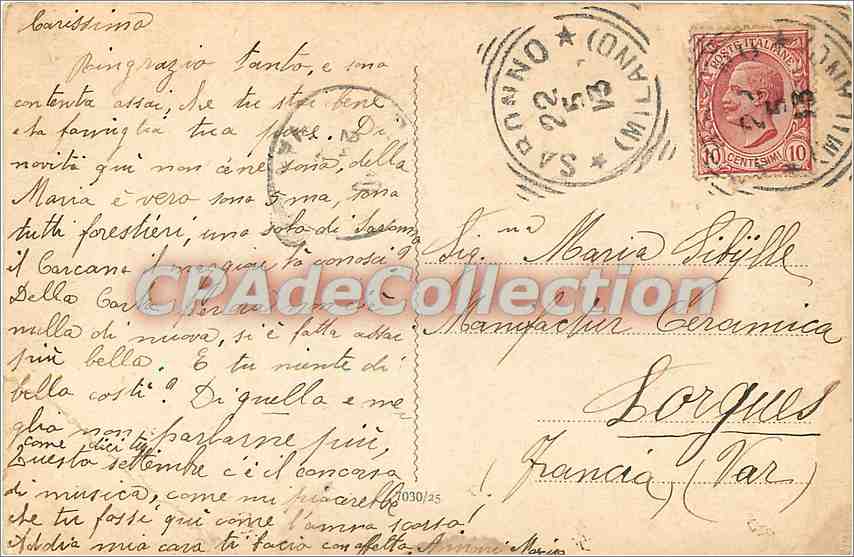 Carissima
Ringrazio tanto, e sono
contenta assai, che tu stai bene
e la famiglia tua pure. Di
novità qui non c'è ne sono, della
Maria è vero sono 5 ma, sono
tutti forestieri, una sola di Saronno
il Carcano il la conosci?
Della Carla
nulla di nuova, si è fatta assai
più bella. E tu niente di
bella costì? Di quella e me-
glio non parlarne più,
come dici tu
Questo settembre c'è il concorso
di musica, come mi piacerebbe
che tu fossi qui come l'anno scorso!
Addio mia cara ti bacio con affetto Maria
7030/25
CPAdeCollection
SARONNO (MILANO)
22 5 13
POSTE ITALIANE
10 CENTESIMI 10
Sig.na Maria Sibÿlle
Manufactur Ceramica
Lorgues
(Francia) (Var)